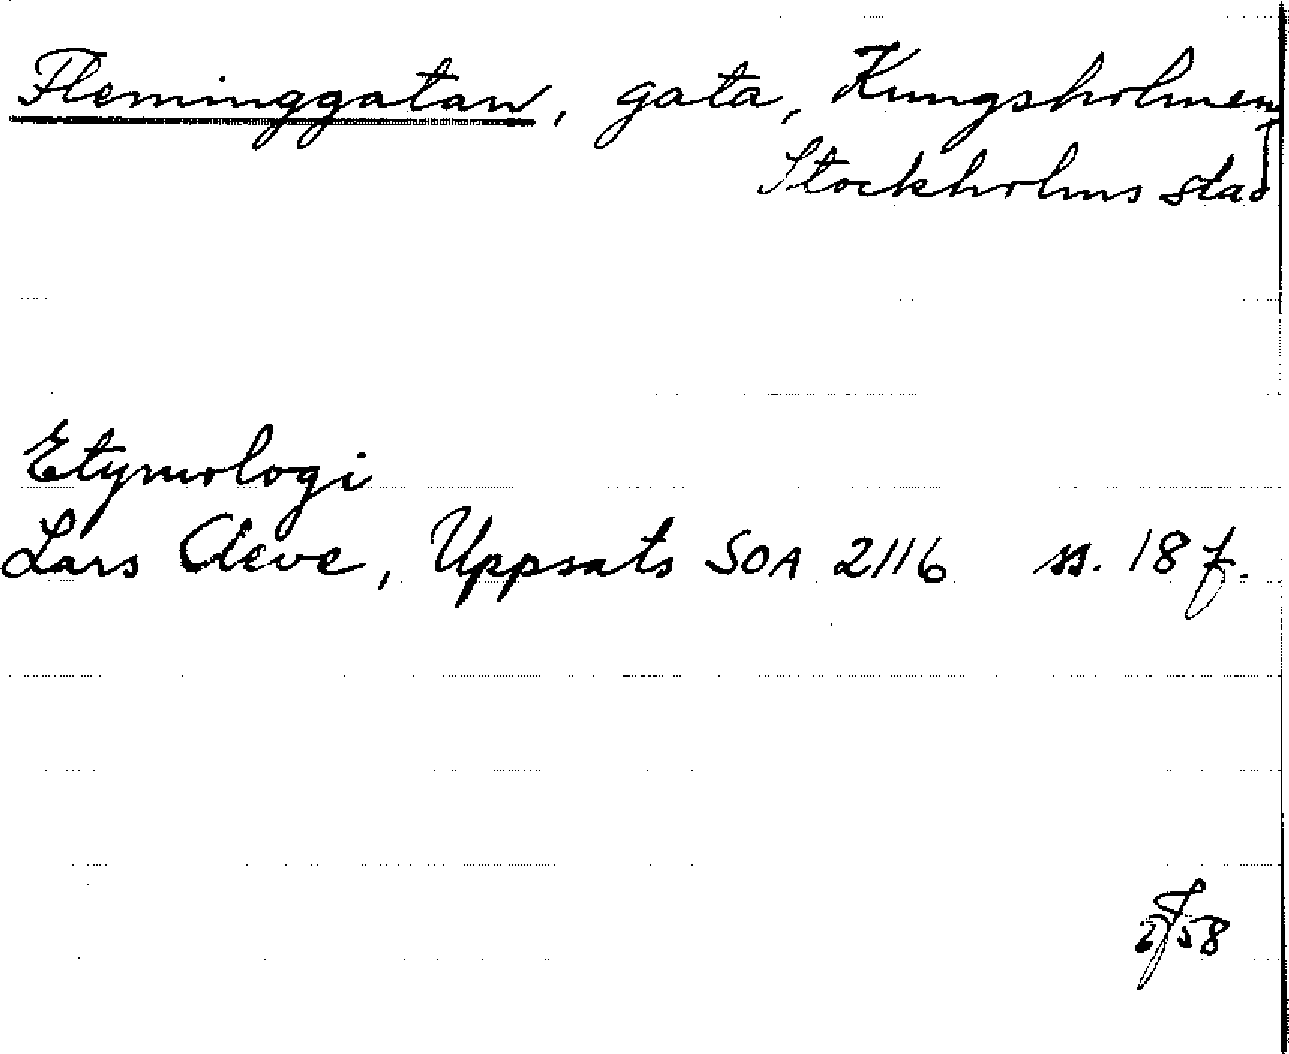 Fleminggatan, gata, Kungsholmen,
Stockholms stad
Etymologi
Lars Cleve, Uppsats SOA 2116 ss. 18 f.